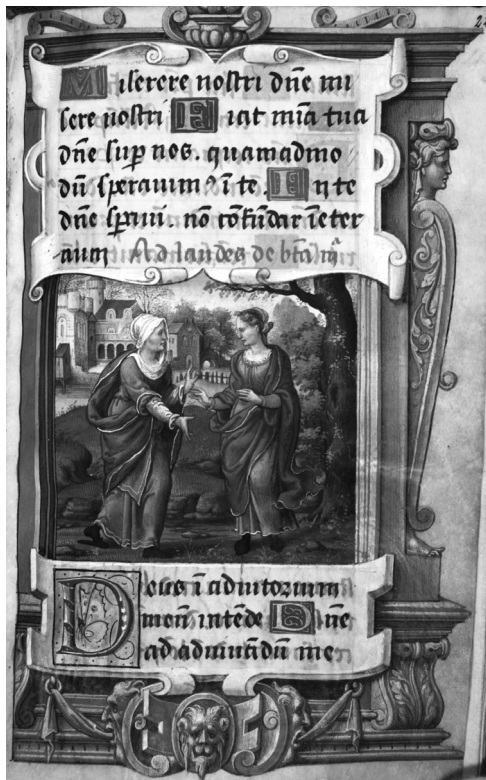 Miserere nostri dñe mi
sere nostri Fiat mĩa tua
dñe sup nos. quamadmo
dũ speravimꝰ ĩ te. In te
dñe spavi nõ cõfundar ĩ eter
num Ad laudes de btã mᵃ
Deus ĩ adiutorium
meũ intẽde Dñe
ad adiuvãdũ me